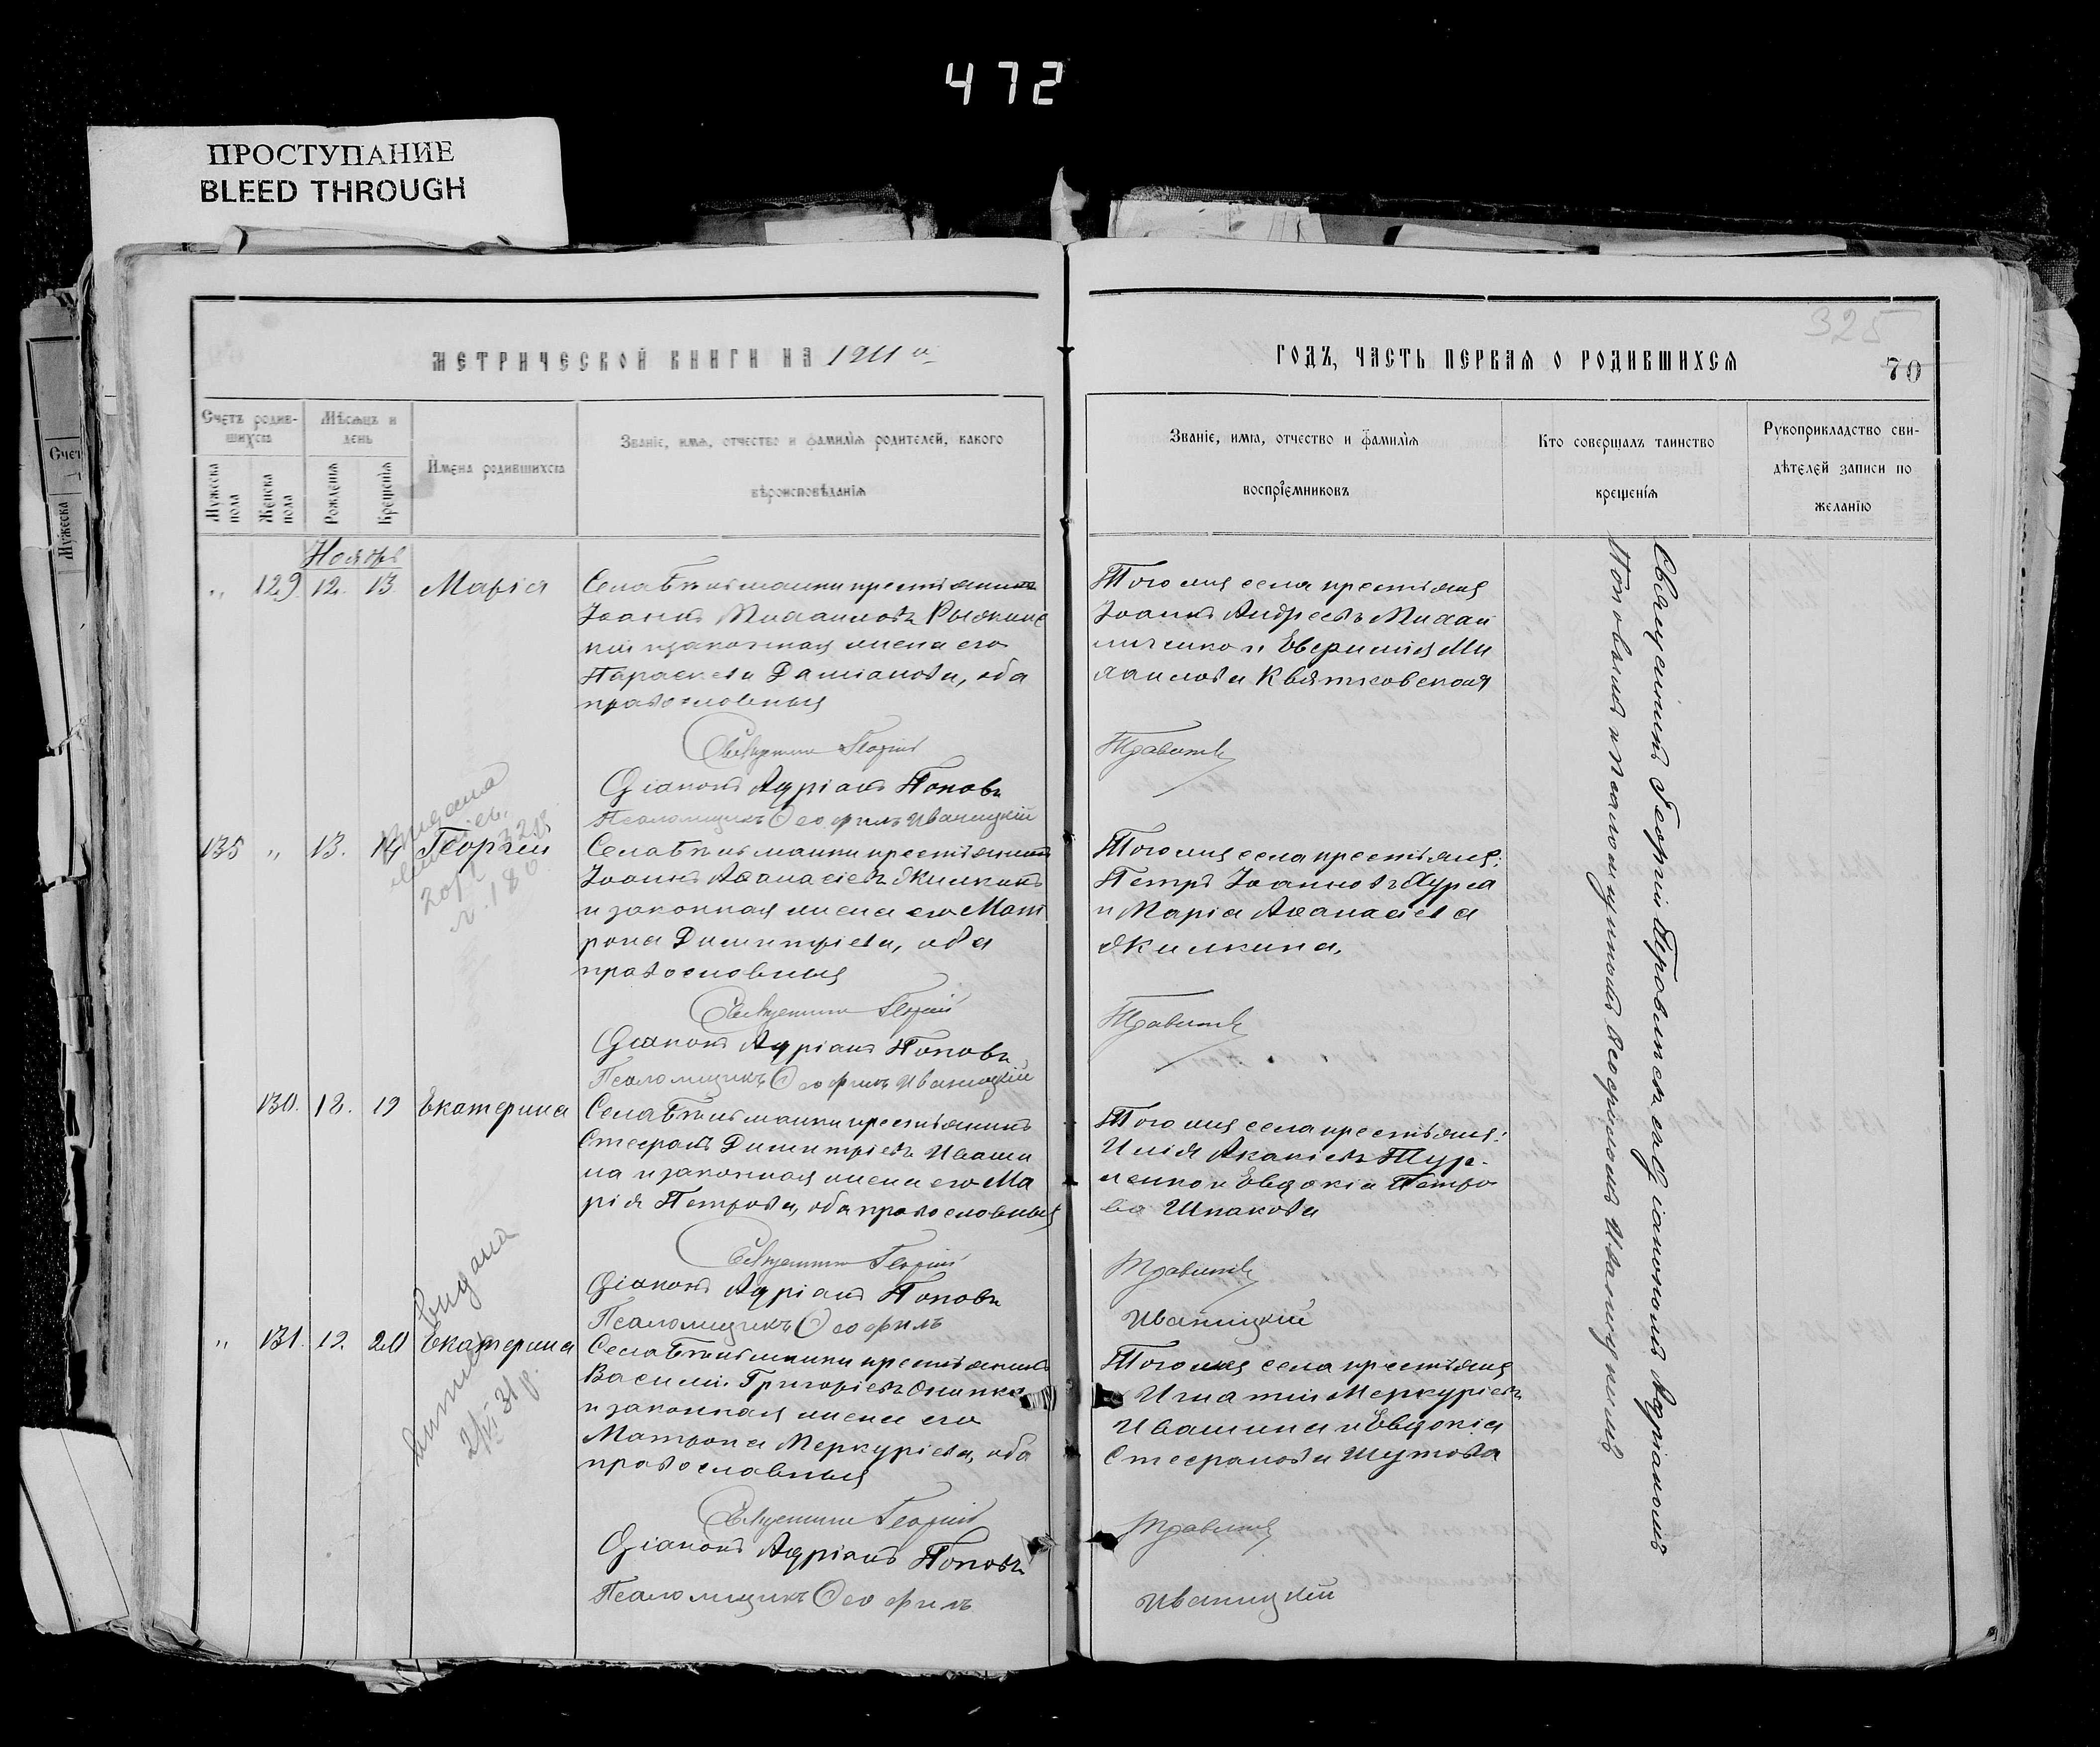 472
ПРОСТУПАНИЕ
BLEED THROUGH
325
МЕТРИЧЕСКОЙ КНИГИ НА 1911 й
ГОДЪ, ЧАСТЬ ПЕРВАЯ О РОДИВШИХСЯ
70
Счетъ родив-
шихся
Мужеска пола
Женска пола
Мѣсяцъ и
день
Рожденія
Крещенія
Имена родившихся
Званіе, имя, отчество и фамилія родителей, какого
вѣроисповѣданія
Званіе, имя, отчество и фамилія
воспріемниковъ
Кто совершалъ таинство
крещенія
Рукоприкладство сви-
дѣтелей записи по
желанію
Счет
Мужеска
Ноябрь
" 129. 12. 13. Марія
Села крестьянинъ
Іоаннъ Михаиловъ
кій и законная жена его
Параскева Даміанова, оба
православныя
Священникъ Георгій
Діаконъ Адріанъ Поповъ
Псаломщикъ Ѳеофилъ Иваницкій
Того же села крестьяне
Іоаннъ Андреевъ Михаи
личенко и Евфимія Ми
хаилова Квятковская
135 " 13. 14 Георгій
Села крестьянинъ
Іоаннъ Аѳанасіевъ Якилкинъ
и законная жена его Мат
рона Димитріева, оба
православныя
Священникъ Георгій
Діаконъ Адріанъ Поповъ
Псаломщикъ Ѳеофилъ Иваницкій
Того же села крестьяне:
Петръ Іоанновъ
и Марія Аѳанасіева
Якилкина.
130. 18. 19 Екатерина
Села крестьянинъ
Стефанъ Димитріевъ Иваши
на и законная жена его Ма
рія Петрова, оба православныя
Священникъ Георгій
Діаконъ Адріанъ Поповъ
Псаломщикъ Ѳеофилъ
Того же села крестьяне:
Илія Акакіевъ Тур-
ченко и Евдокія Петро
ва Шпакова
Иваницкій
" 131. 19. 20 Екатерина
Села крестьянинъ
Василій Григоріевъ
и законная жена его
Матрона Меркуріева, оба
православныя
Священникъ Георгій
Діаконъ Адріанъ Поповъ
Псаломщикъ Ѳеофилъ
Того же села крестьяне
Игнатій Меркуріевъ
Ивашина и Евдокія
Стефанова Шутова
Иваницкій
Священникъ Георгій съ діакономъ Адріаномъ
Поповымъ и псаломщикомъ Ѳеофиломъ Иваницкимъ